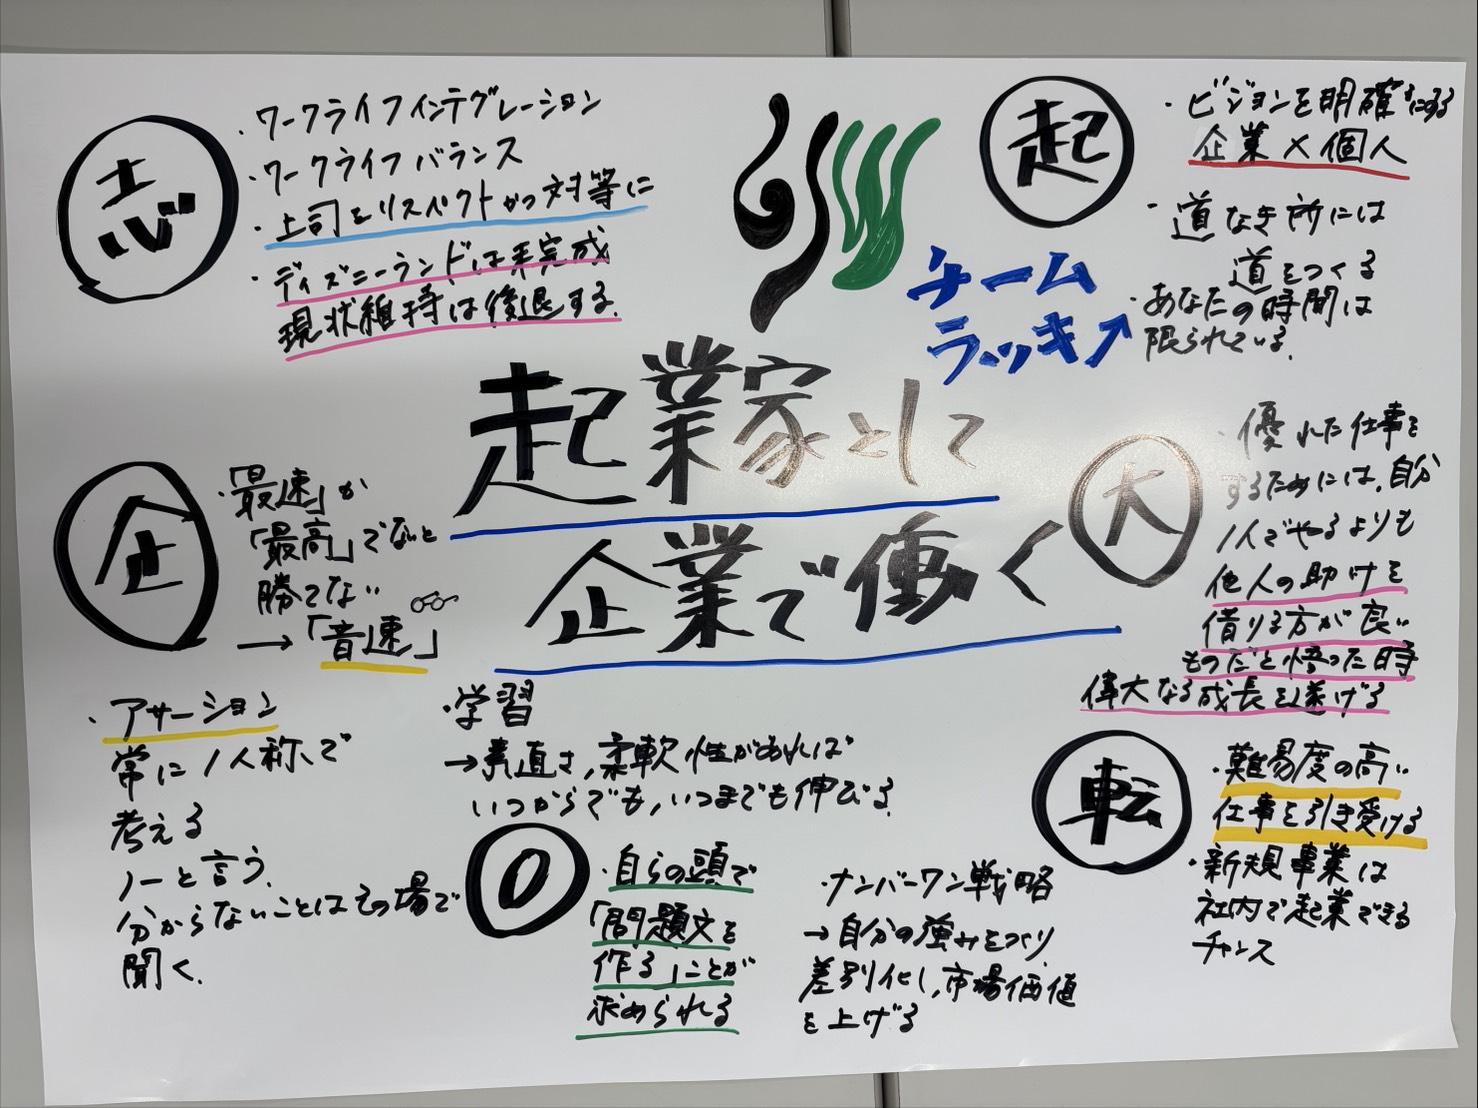 志
・ワークライフインテグレーション
・ワークライフバランス
・上司をリスペクトかつ対等に
・ディズニーランドは未完成
現状維持は後退する.
チーム
ラッキー
起
・ビジョンを明確にする
企業×個人
・道なき所には
道をつくる
・あなたの時間は
限られている.
起業家として
企業で働く
企
・「最速」か
「最高」でないと
勝てない
→「音速」
大
・優れた仕事を
するためには、自分
1人でやるよりも
他人の助けを
借りる方が良い
ものだと悟った時
偉大なる成長を遂げる
・アサーション
常に1人称で
考える
ノーと言う.
分からないことはその場で
聞く.
・学習
→素直さ,柔軟性があれば
いつからでも,いつまでも伸びる.
0
・自らの頭で
「問題文を
作る」ことが
求められる
・ナンバーワン戦略
→自分の強みをつくり
差別化し,市場価値
を上げる
転
・難易度の高い
仕事を引き受ける
・新規事業は
社内で起業できる
チャンス